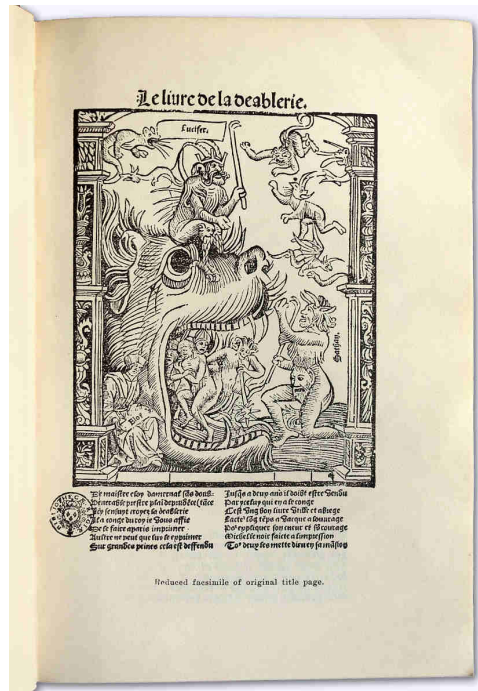 Le livre de la deablerie.
Lucifer.
Sathan.
De maistre eloy damernal
venerable prestre plai
sensuyt croyez la deablerie
a conge du roy ie vous affie
De le faire a paris imprimer
Aultre ne peut que luy se exprimer
Sur grandes peines cela est deffendu
Jusqs a deux ans il doibt estre vendu
Par ycelluy qui en a le conge
Cest ung bon livre utile et abrege
Lacteur
Pour expliquer son cueur et courage
Michel le noir faicte a limpression
To9 deux les mette dieu en sa
Reduced facsimile of original title page.